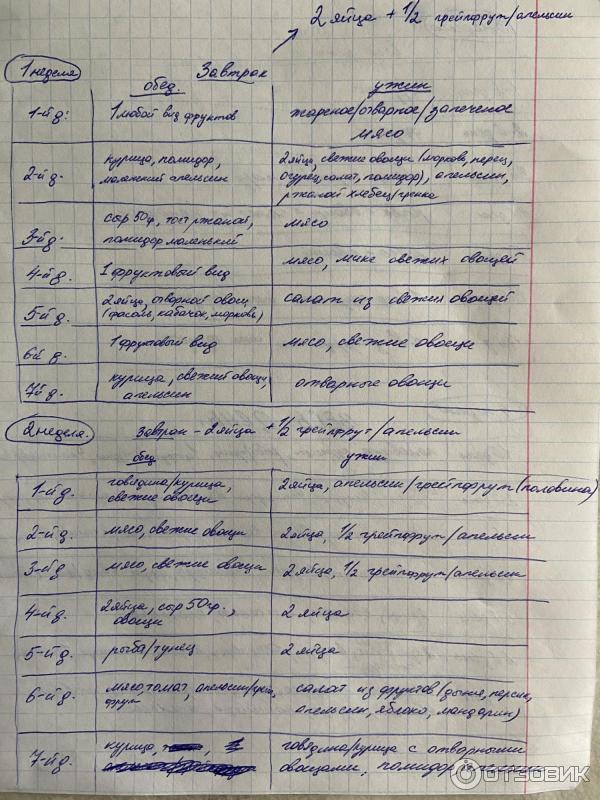 2 яйца + 1/2 грейпфрут/апельсин
1 неделя
Завтрак
обед
ужин
1-й д:
1 любой вид фруктов
жареное/отварное/запеченое
мясо
2-й д.
курица, помидор,
маленький апельсин
2 яйца, свежие овощи (морковь, перец,
огурец, салат, помидор), апельсин,
ржаной хлебец/гренка
3-й д.
сыр 50гр, тост ржаной,
помидор маленький
мясо
4-й д.
1 фруктовый вид
мясо, микс свежих овощей
5-й д.
2 яйца, отварной овощ
(фасоль, кабачок, морковь)
салат из свежих овощей
6й д.
1 фруктовый вид
мясо, свежие овощи
7й д.
курица, свежий овощи,
апельсин
отварные овощи
2 неделя.
Завтрак - 2 яйца + 1/2 грейпфрут/апельсин
обед
ужин
1-й д.
говядина/курица,
свежие овощи
2 яйца, апельсин/грейпфрут (половина)
2-й д.
мясо, свежие овощи
2 яйца, 1/2 грейпфрут/апельсин
3-й д
мясо, свежие овощи
2 яйца, 1/2 грейпфрут/апельсин
4-й д
2 яйца, сыр 50гр.,
овощи
2 яйца
5-й д.
рыба/тунец
2 яйца
6-й д.
мясо, томат, апельсин/
фрут
салат из фруктов (дыня, персик,
апельсин, яблоко, мандарин)
7-й д.
курица,
говядина/курица с отварными
овощами, помидор
ОТЗОВИК